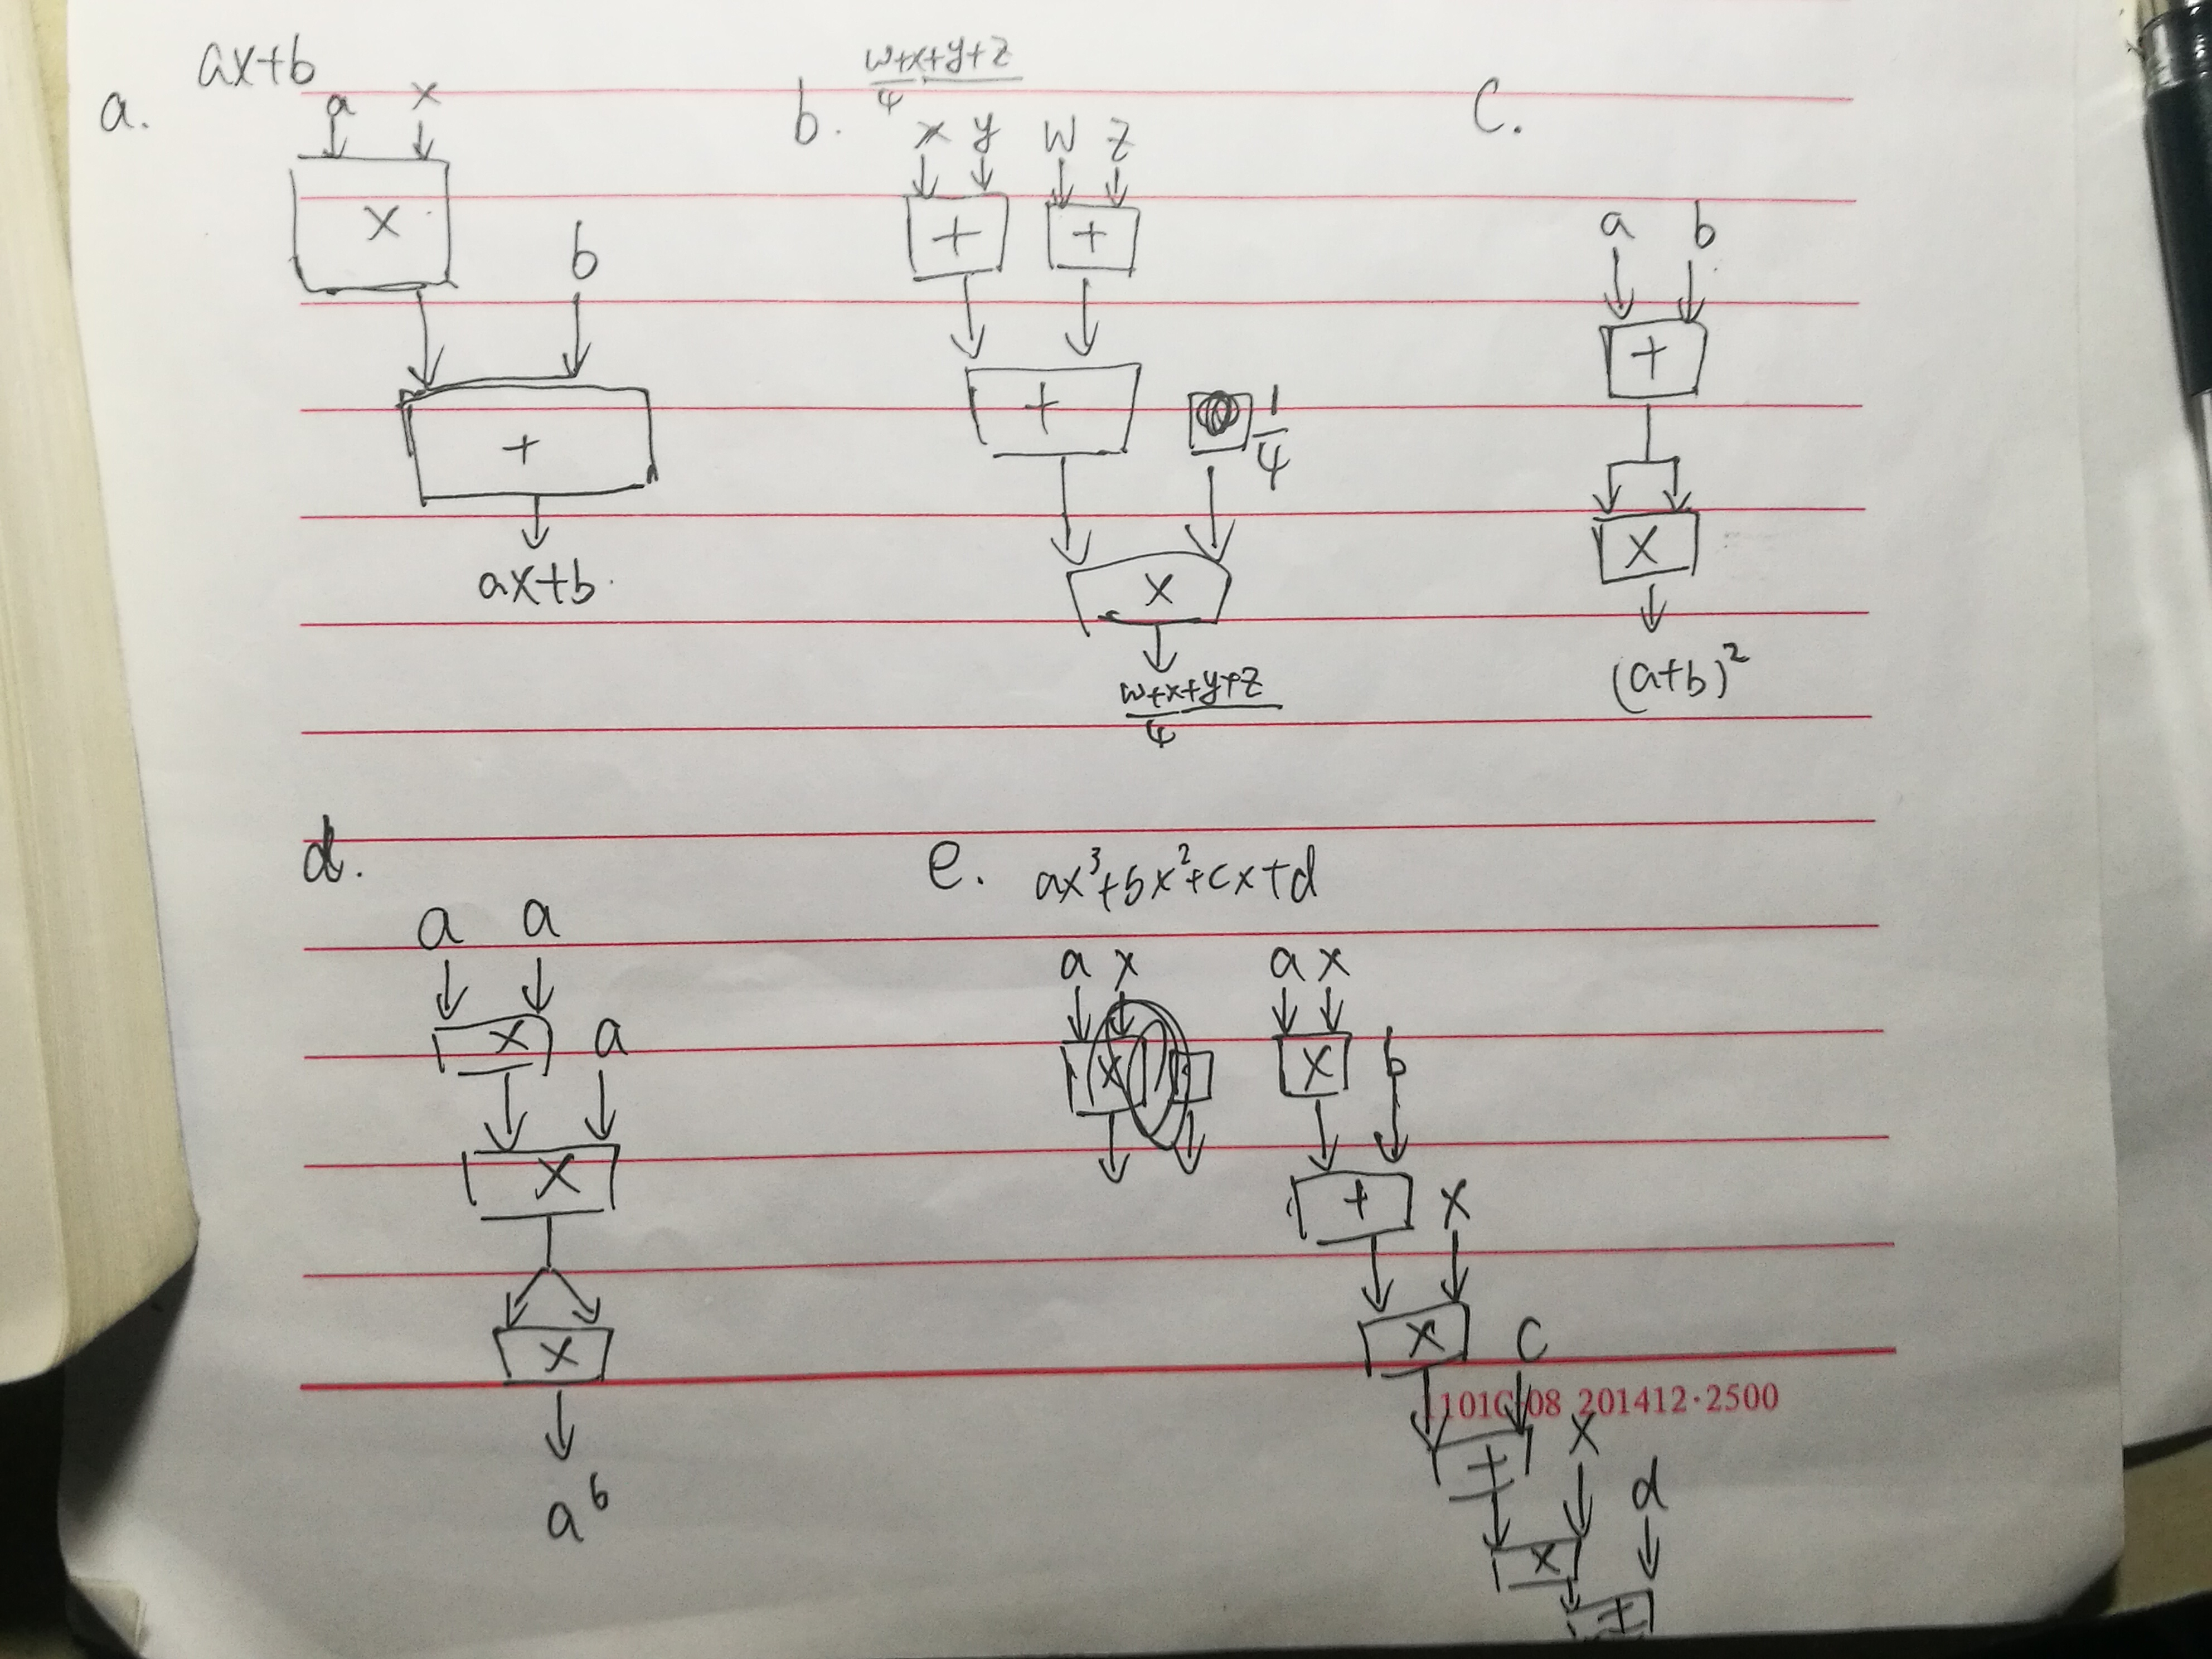 ax+b
a.
a x
×
b
+
ax+b.
b.
w+x+y+z
4
x y w z
+ +
+
1
4
×
w+x+y+z
4
c.
a b
+
×
(a+b)²
d.
a a
× a
×
×
a⁶
e. ax³+bx²+cx+d
a x
×
a x
× b
+ x
× c
1010-08 201412·2500
+ x
× d
+